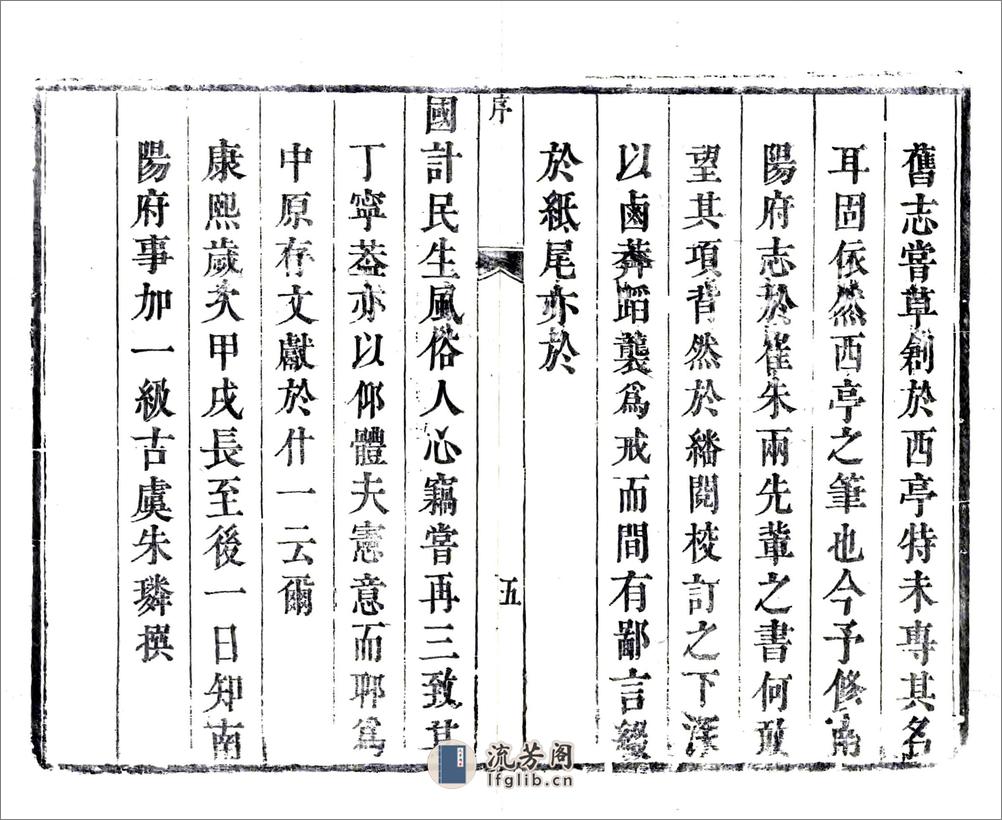 舊志嘗草創於西亭特未專其名
耳固依然西亭之筆也今予修南
陽府志於崔朱兩先輩之書何敢
望其項背然於繙閱校訂之下深
以鹵莽蹈襲爲戒而間有鄙言綴
於紙尾亦於
序
五
國計民生風俗人心竊嘗再三致其
丁寧葢亦以仰體夫憲意而聊爲
中原存文獻於什一云爾
康熙歲次甲戌長至後一日知南
陽府事加一級古虞朱璘撰
流芳阁
lfglib.cn